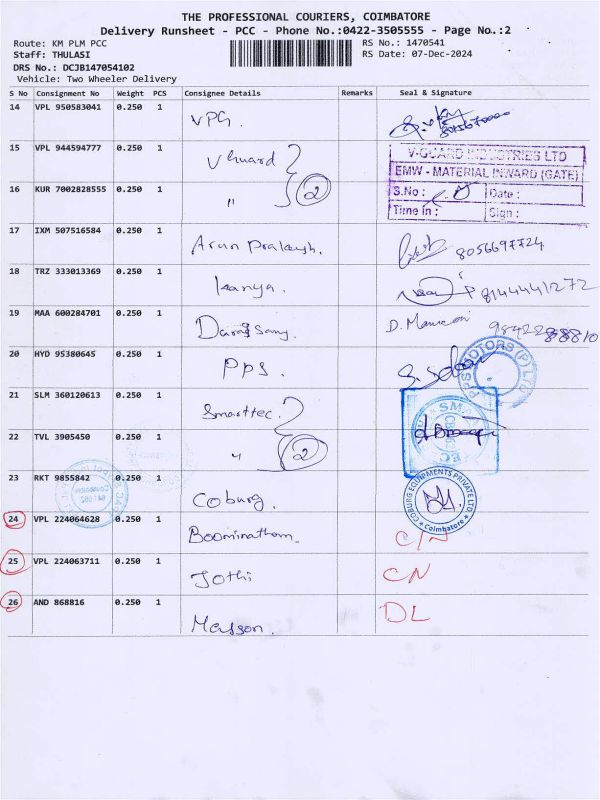 THE PROFESSIONAL COURIERS, COIMBATORE
Delivery Runsheet - PCC - Phone No.:0422-3505555 - Page No.:2
Route: KM PLM PCC RS No.: 1470541
Staff: THULASI RS Date: 07-Dec-2024
DRS No.: DCJB147054102
Vehicle: Two Wheeler Delivery
S No Consignment No Weight PCS Consignee Details Remarks Seal & Signature
14 VPL 950583041 0.250 1 VPG.
15 VPL 944594777 0.250 1 VGuard
V-GUARD INDUSTRIES LTD
EMW - MATERIAL INWARD (GATE)
16 KUR 7002828555 0.250 1 " 2 S.No : Date :
Time in : Sign :
17 IXM 507516584 0.250 1 Arun Prakash. 8056697724
18 TRZ 333013369 0.250 1 Kanya. 8144441272
19 MAA 600284701 0.250 1 D.
20 HYD 95380645 0.250 1 PPS.
PPS MOTORS (P) LTD
21 SLM 360120613 0.250 1 Smarttec.
22 TVL 3905450 0.250 1 " 2
23 RKT 9855842 0.250 1 Coburg.
COBURG EQUIPMENTS PRIVATE LTD
* Coimbatore *
24 VPL 224064628 0.250 1 Boominathan. C/N
25 VPL 224063711 0.250 1 Jothi CN
26 AND 868816 0.250 1 Masson. DL